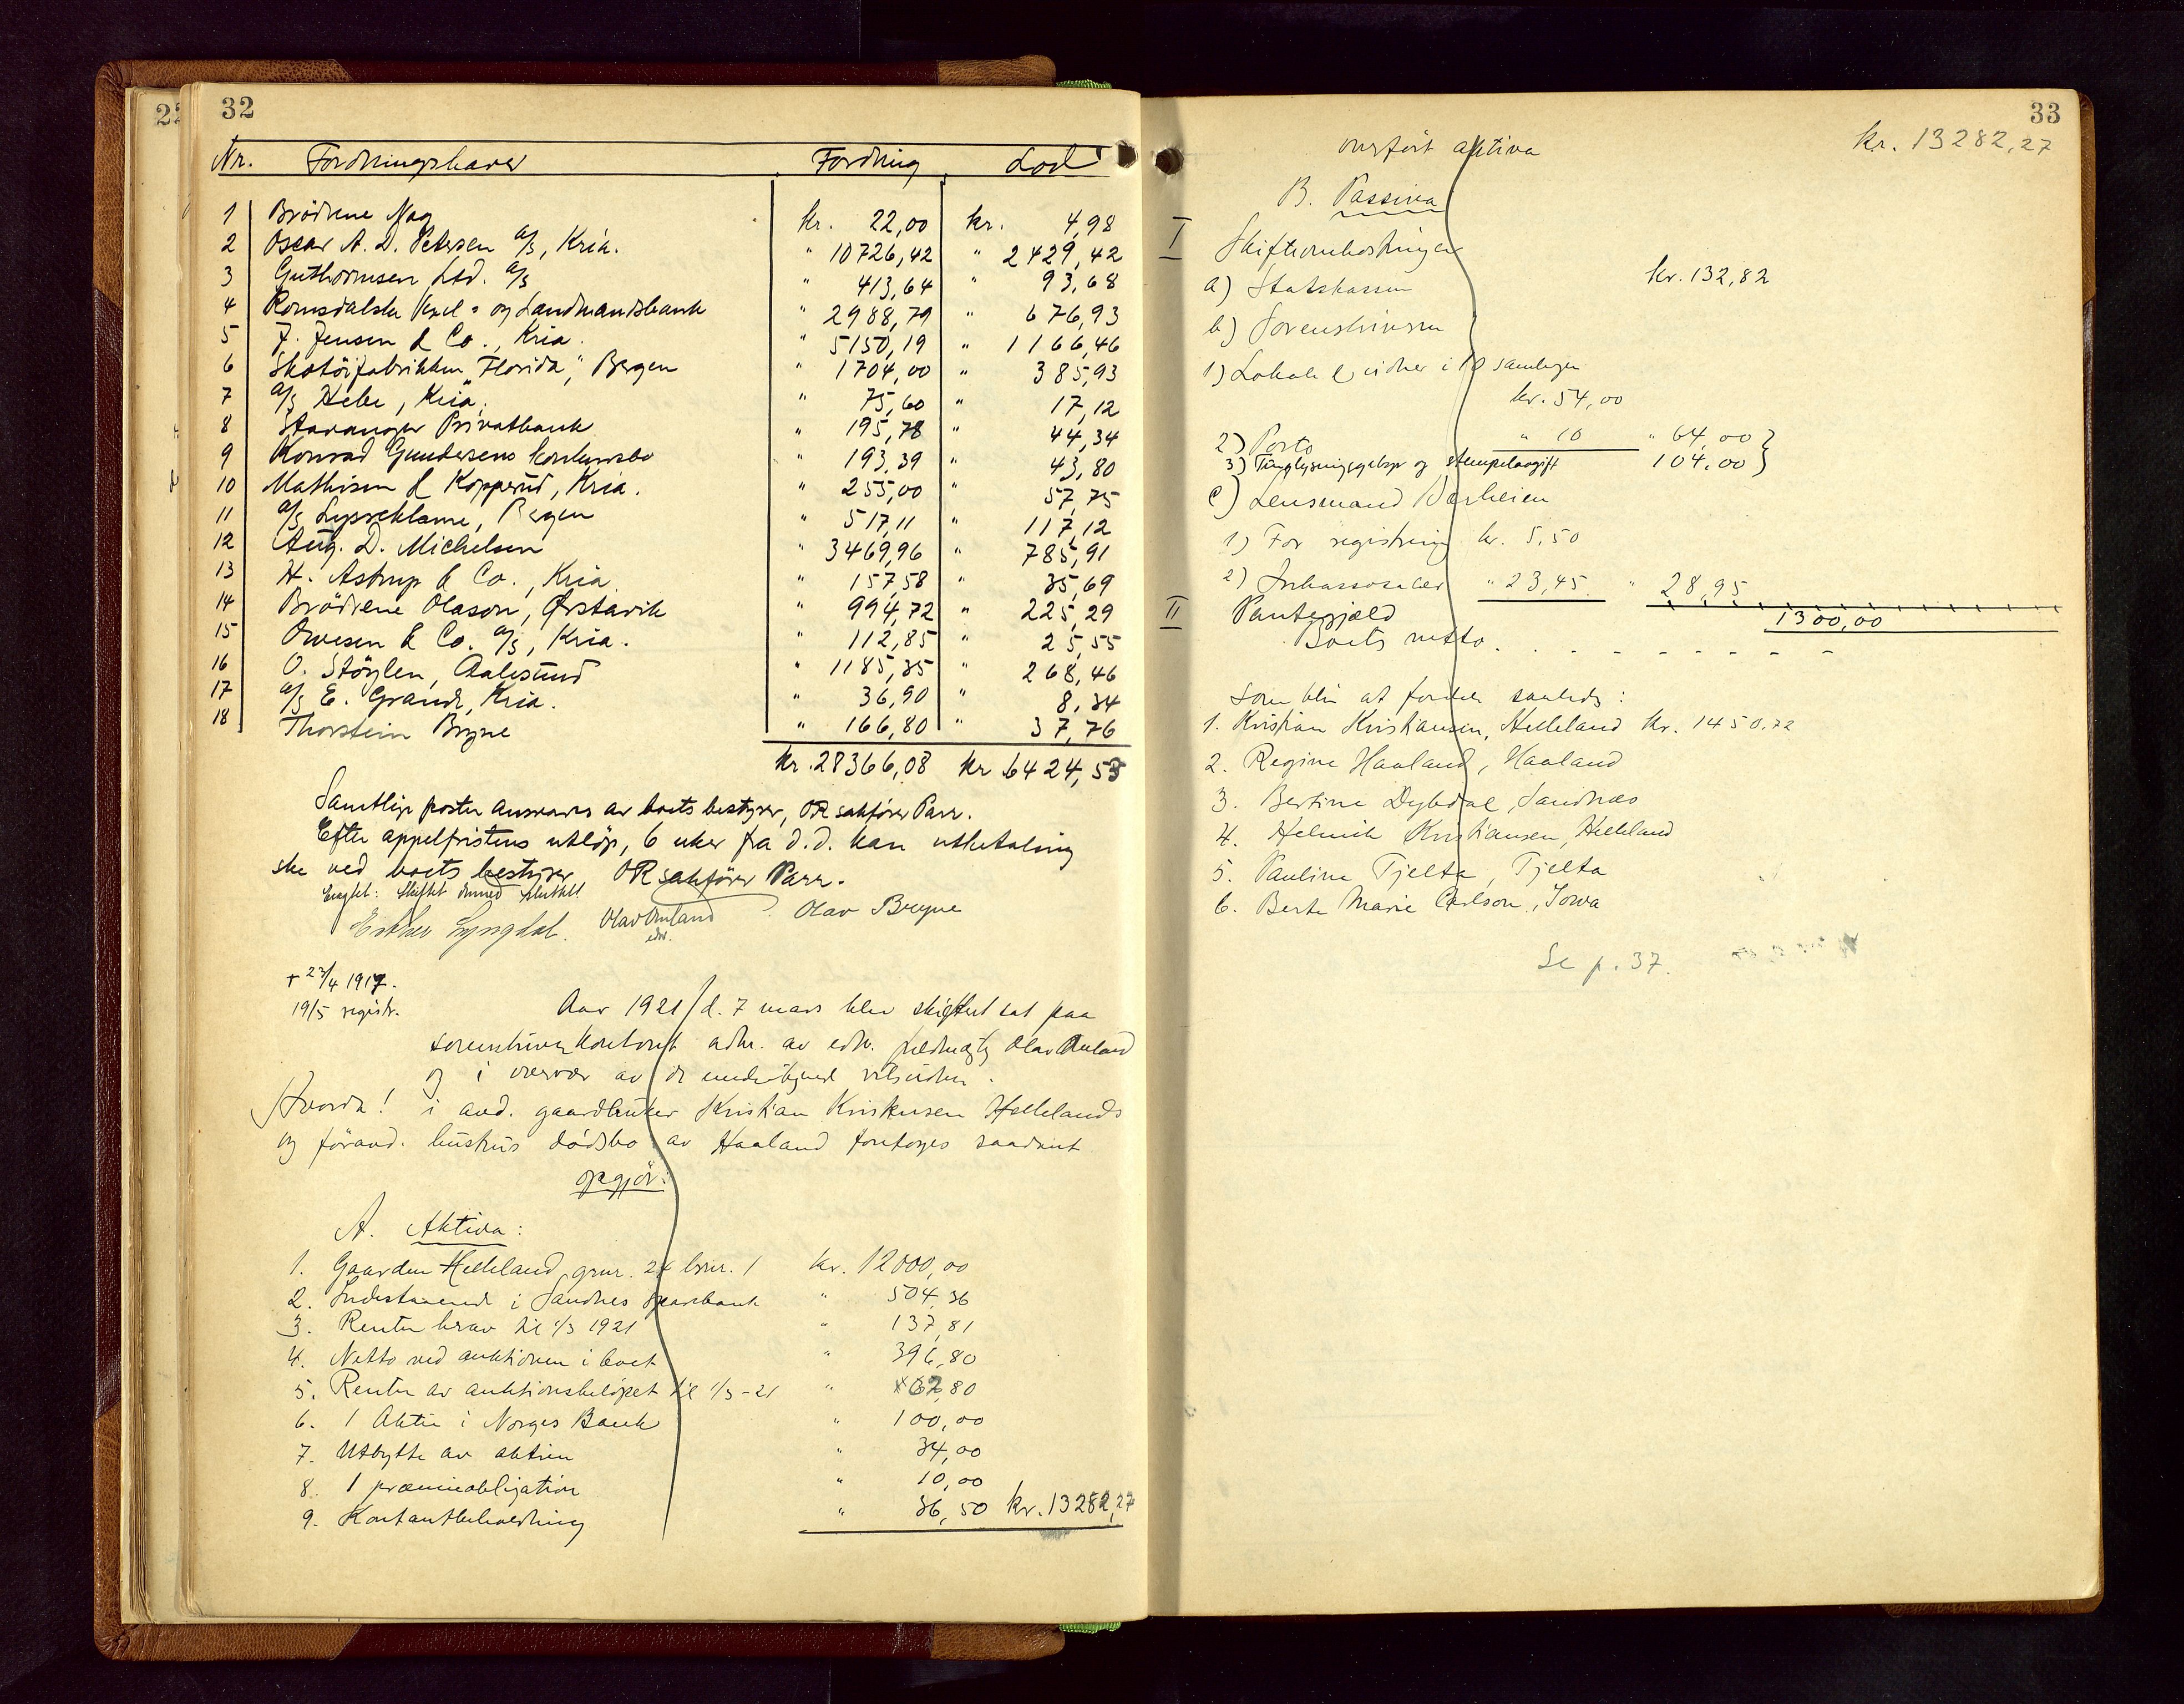 22
32
Nr. Fordringshaver Fordring Lod
1 Brödrene Nag kr. 22,00 kr. 4,98
2 Oscar A. D. Petersen A/S, Kria. " 10726,42 " 2429,42
3 Guthormsen Ltd. A/S " 413,64 " 93,68
4 Romsdalske Vexel- og Landmandsbank " 2988,79 " 676,93
5 J. Jensen & Co., Kria. " 5150,19 " 1166,46
6 Skotöifabrikken "Florida", Bergen " 1704,00 " 385,93
7 A/S Hebe, Kria. " 75,60 " 17,12
8 Stavanger Privatbank " 195,78 " 44,34
9 Konrad Gundersens konkursbo " 193,39 " 43,80
10 Mathisen & Kopperud, Kria. " 255,00 " 57,75
11 A/S Lysreklame, Bergen " 517,11 " 117,12
12 Aug. D. Michelsen " 3469,96 " 785,91
13 H. Astrup & Co., Kria " 157,58 " 35,69
14 Brödrene Olason, Ørstavik " 994,72 " 225,29
15 Owesen & Co. A/S, Kria. " 112,85 " 25,55
16 O. Stöylen, Aalesund " 1185,35 " 268,46
17 A/S E. Grandt, Kria. " 36,90 " 8,34
18 Thorstein Bryne " 166,80 " 37,76
kr. 28366,08 kr 6424,53
Samtlige poster ansvares av boets bestyrer, OR sakförer Parr.
Efter appelfristens utlöp, 6 uker fra d.d. kan utbetaling
ske ved boets bestyrer, OR sakförer Parr.
Skiftet dermed sluttet.
Esther Lyngdal. Olav Auland Olav Bryne
edsv.
+ 23/4 1917.
19/5 registr.
Aar 1921 d. 7 mars blev skifteret sat paa
sorenskriverkontoret adm. av edsv. fuldmægtig Olav Auland
og i overvær av de undertegnede vidner.
Hvorda! i avd. gaardbruker Kristian Kristensen Hellelands
og föravd. hustrus dödsbo av Haaland foretoges saadant
opgjör:
A. Aktiva:
1. Gaarden Helleland gnr. 24 bnr. 1 kr. 12000,00
2. Indestaaende i Sandnes Sparebank " 504,36
3. Renter herav til 1/3 1921 " 137,81
4. Netto ved auktionen i boet " 396,80
5. Renter av auktionsbelöpet til 1/3-21 " 62,80
6. 1 Aktie i Norges Bank " 100,00
7. Utbytte av aktien " 34,00
8. 1 præmieobligation " 10,00
9. Kontantbeholdning " 36,50 kr. 13282,27
33
overfört aktiva kr. 13282,27
B. Passiva
I Skifteomkostninger
a) Statskassen kr. 132,82
b) Sorenskriveren
1) Lokale & vidner i 10 samlinger
kr. 54,00
2) Porto " 10 " 64,00 }
3) Tinglysningsgebyr og stempelavgift 104,00 }
c) Lensmand Varheien
1) For registrering kr. 5,50
2) Inkassosalær " 23,45 " 28,95
II Pantegjæld 1300,00
Boets netto . . - - - - - -
som blir at fordele saaledes:
1. Kristian Kristiansen, Helleland kr. 1450,72
2. Regine Haaland, Haaland
3. Bertine Dybdal, Sandnes
4. Helmik Kristiansen, Helleland
5. Pauline Tjelta, Tjelta
6. Berte Marie Carlson, Iowa
Se p. 37.